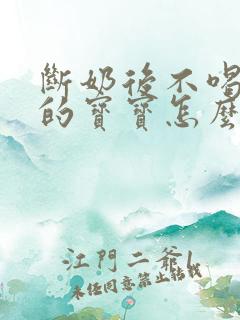 斷奶後不喝
的寶寶怎麼
江門二爺l
未经同意禁止转载